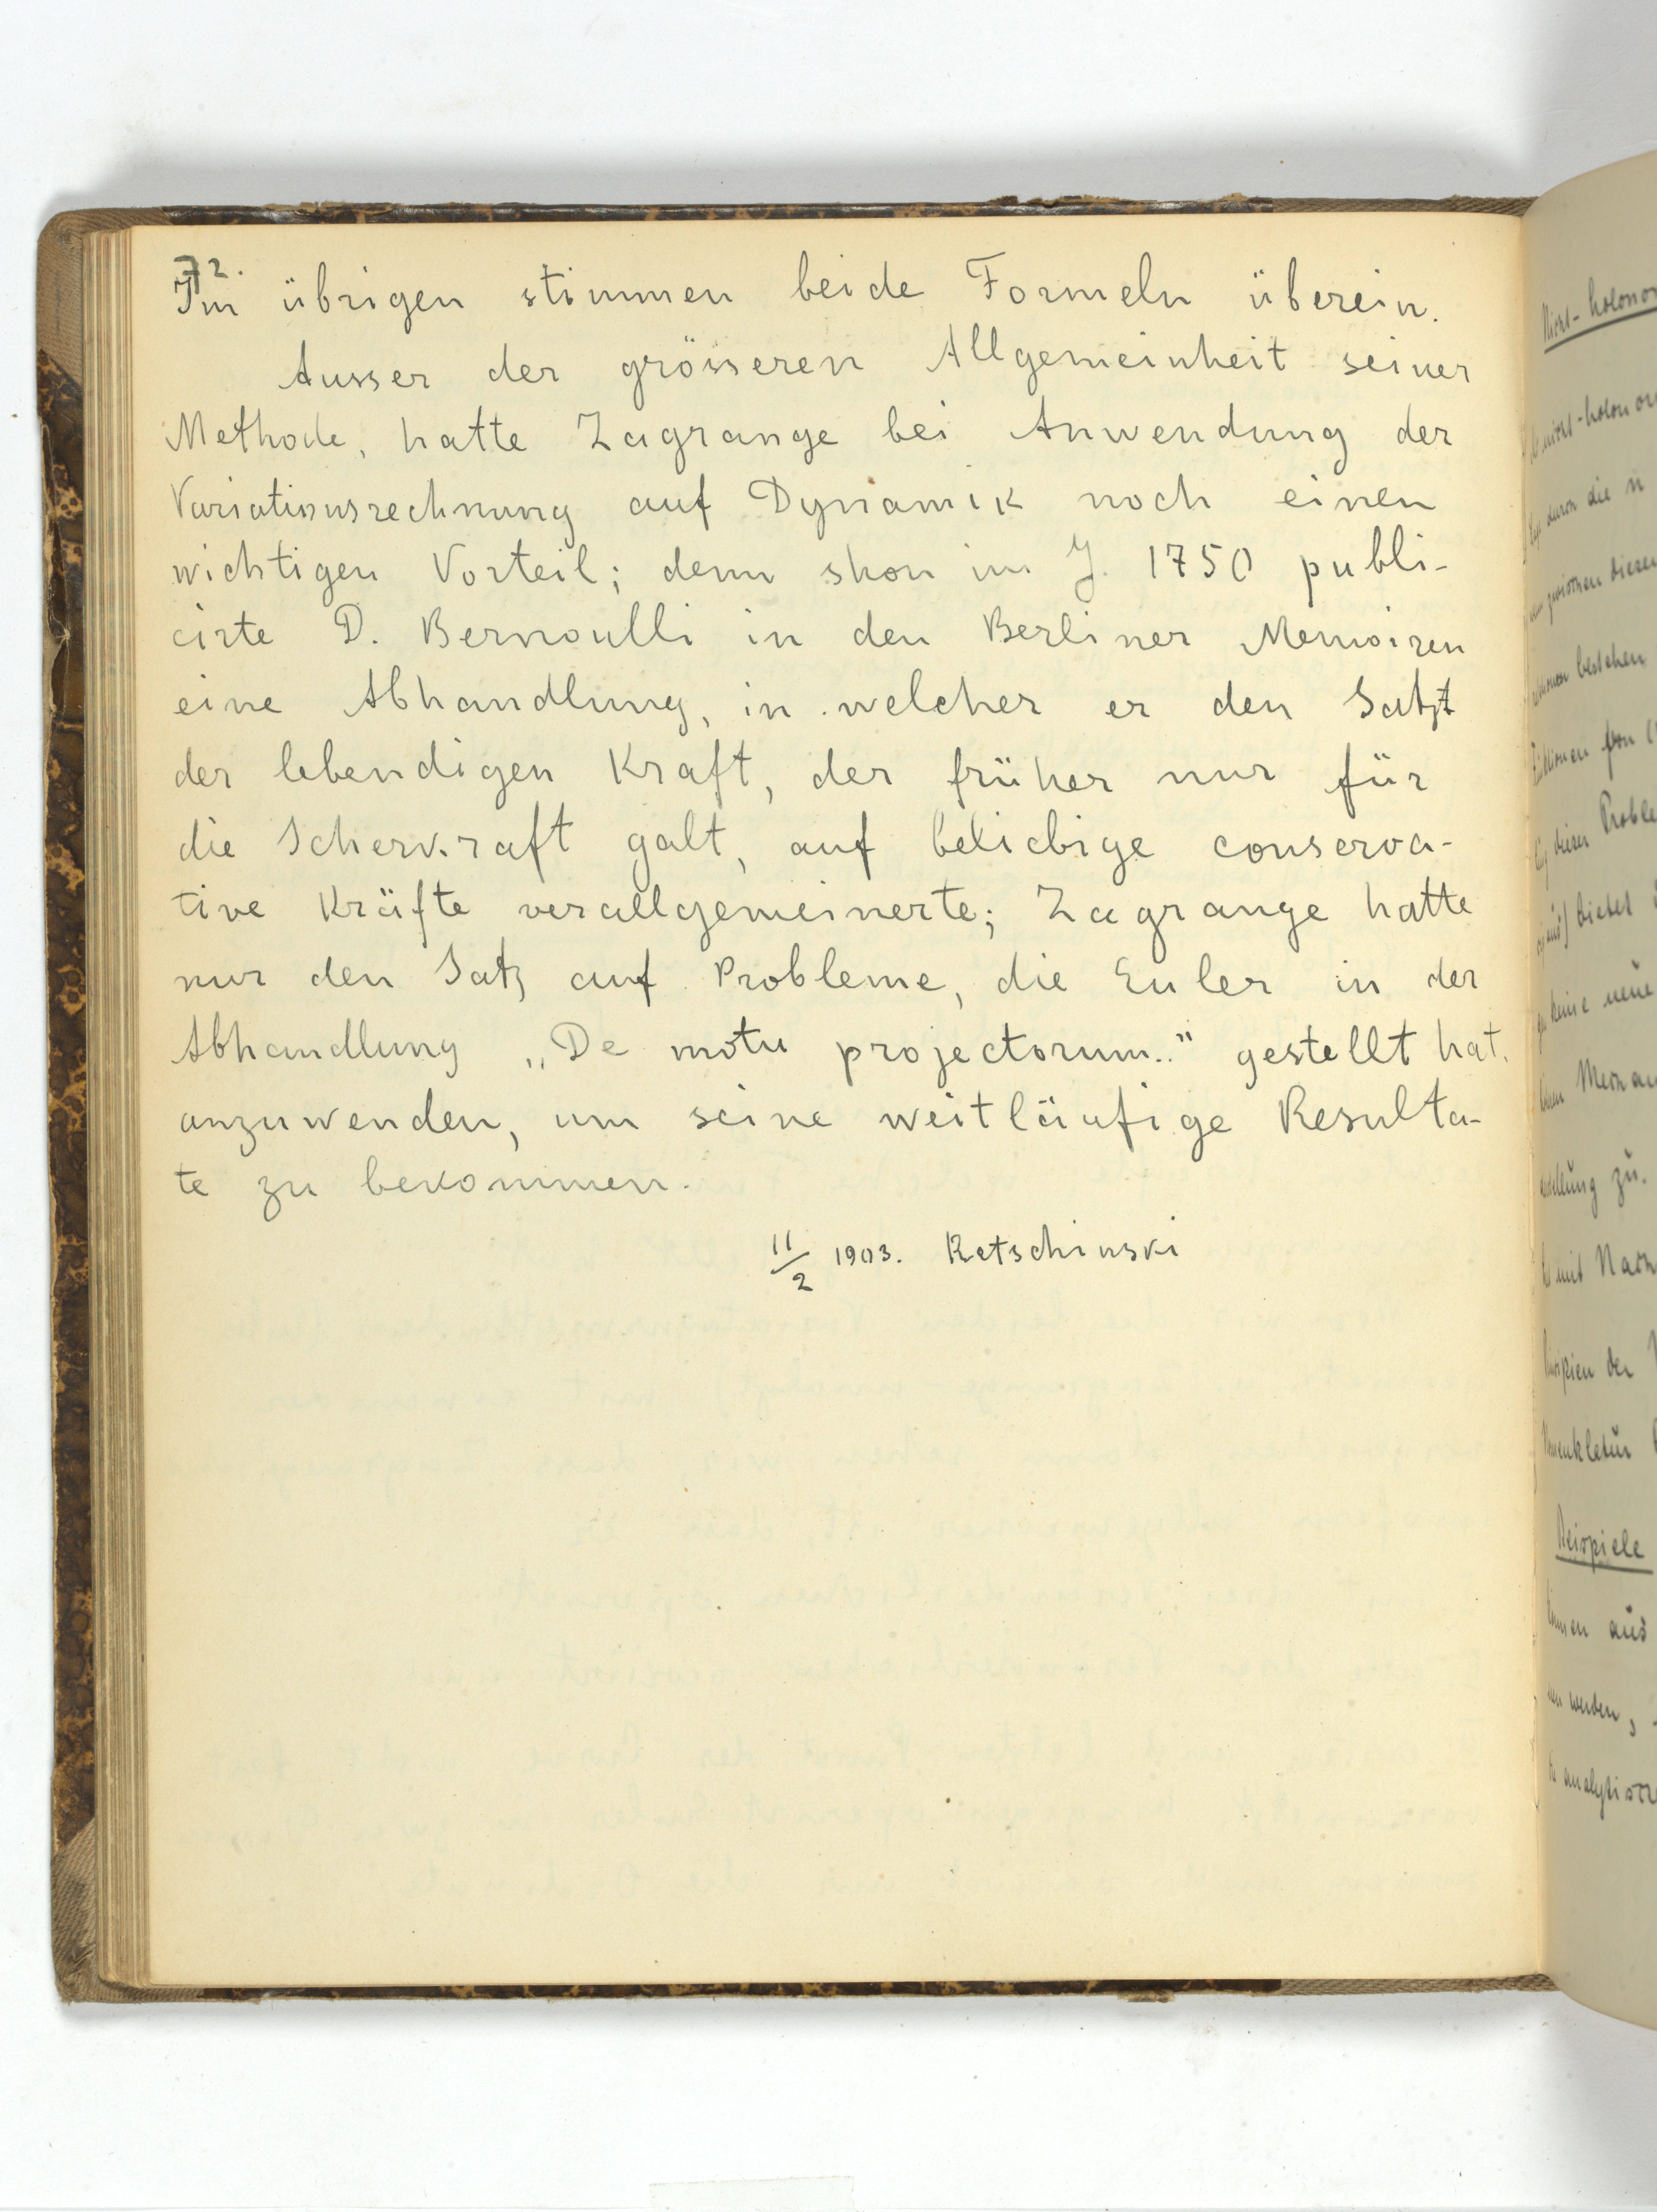 72.
Im übrigen stimmen beide Formeln überein.
Ausser der grösseren Allgemeinheit seiner
Methode, hatte Lagrange bei Anwendung der
Variationsrechnung auf Dynamik noch einen
wichtigen Vorteil; denn shon im J. 1750 publi-
cirte D. Bernoulli in den Berliner Memoiren
eine Abhandlung, in welcher er den Satz
der lebendigen Kraft, der früher nur für
die Scherkraft galt, auf beliebige conserva-
tive Kräfte verallgemeinerte; Lagrange hatte
nur den Satz auf Probleme, die Euler in der
Abhandlung „De motu projectorum.." gestellt hat,
anzuwenden, um seine weitläufige Resulta-
te zu bekommen.
11/2 1903. Retschinski
Nicht-holonom
nicht-holonom
durch die n
zwischen diesen
bestehen
von
dieser Proble
dieses
keine neue
zu.
mit Nach
der
Beispiele
aus
werden,
analytisch